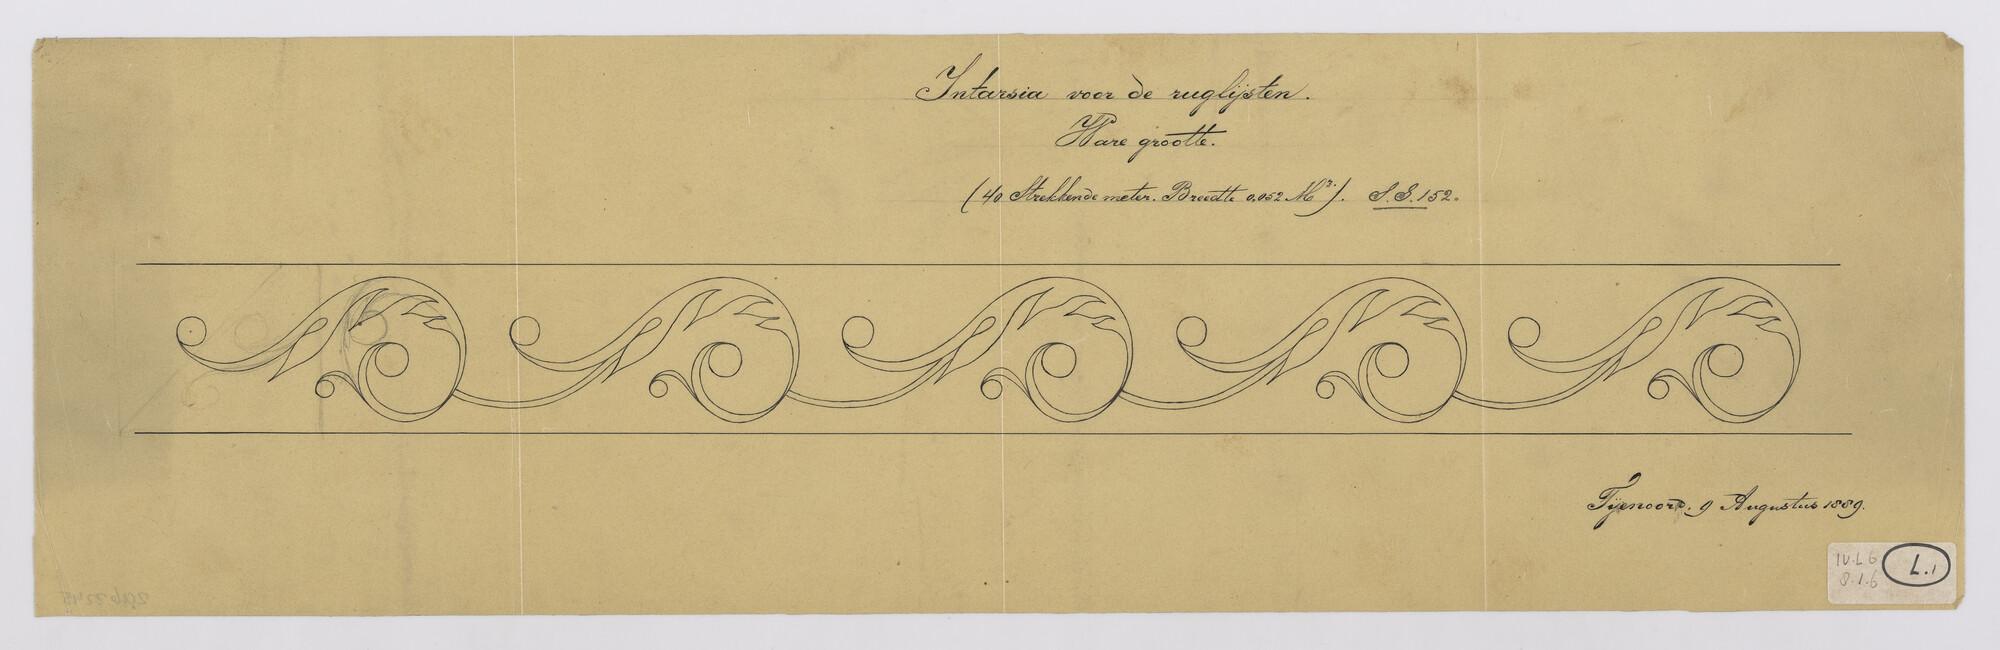 Intarsia voor de ruglijsten.
Ware grootte.
(40 Strekkende meter. Breedte 0,052 M²). S.S. 152.
Fijenoord. 9 Augustus 1889.
IV.L 6
8.1.6
L.1